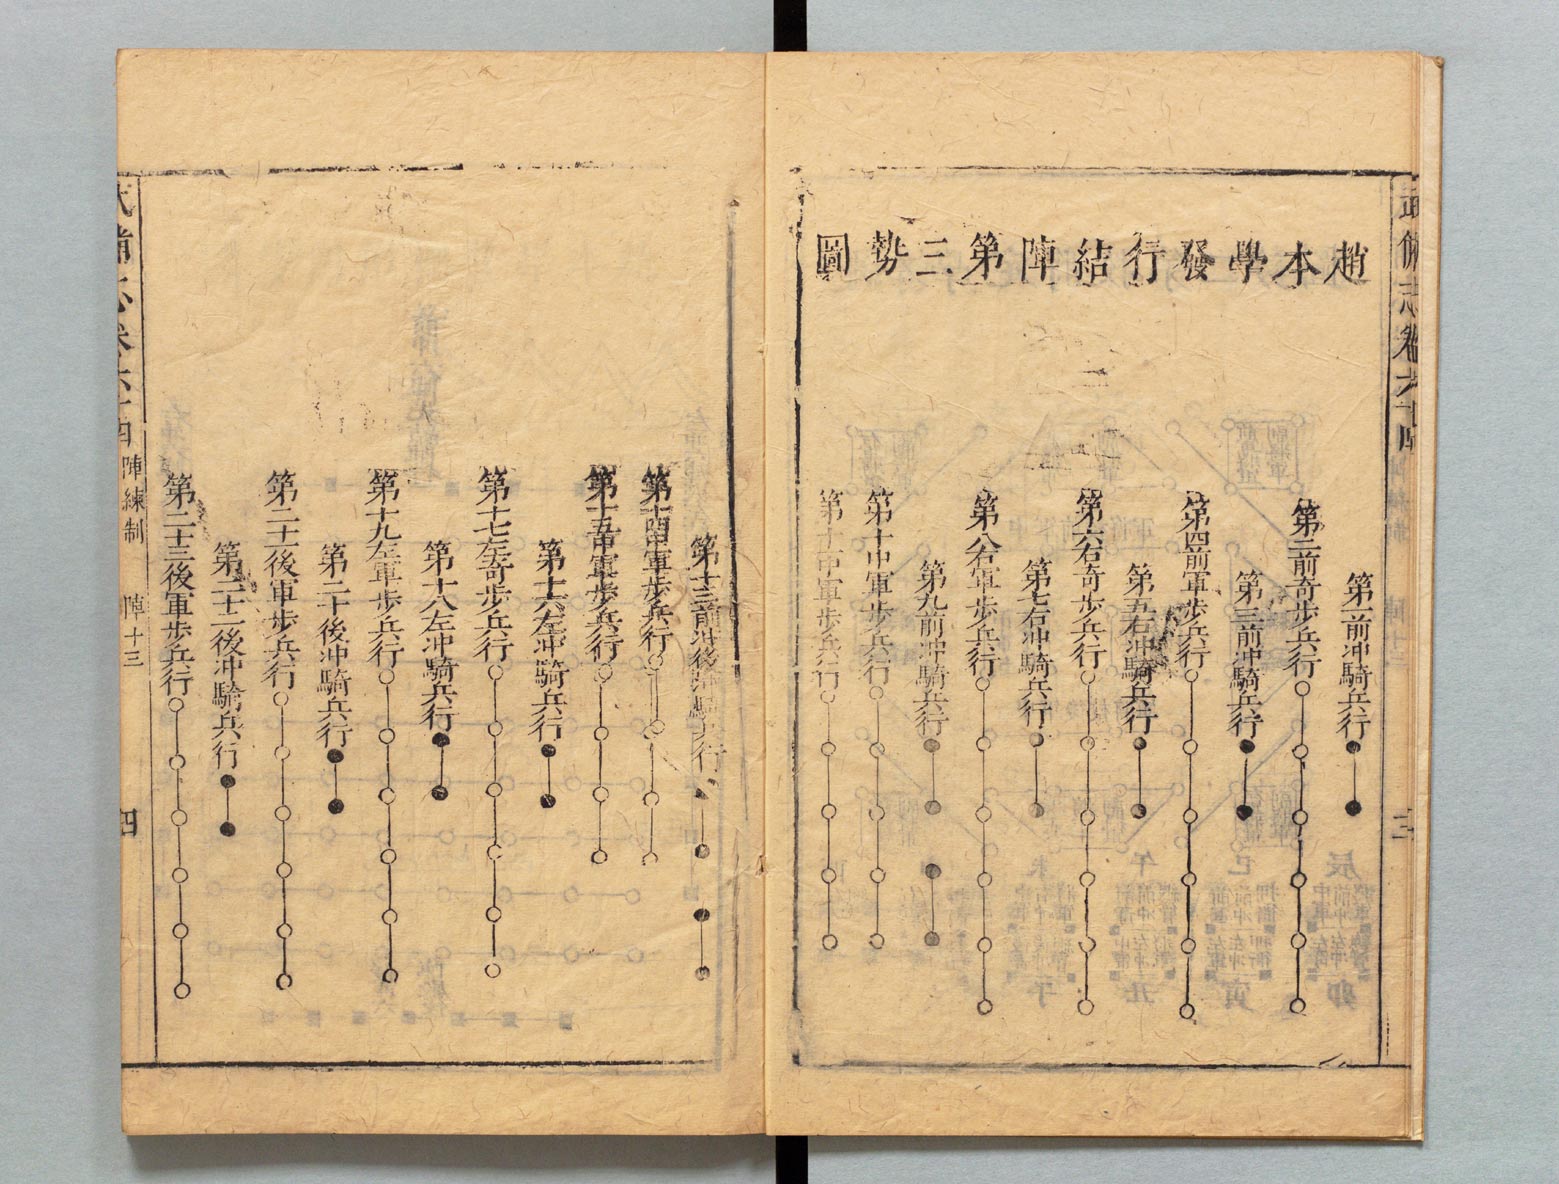 趙本學發行結陣第三勢圖
第一前沖騎兵行
第二前奇步兵行
第三前沖騎兵行
第四前軍步兵行
第五右沖騎兵行
第六右奇步兵行
第七右沖騎兵行
第八右軍步兵行
第九前沖騎兵行
第十中軍步兵行
第十一中軍步兵行
武備志卷六十四
三
第十三前沖後沖騎兵行
第十四中軍步兵行
第十五中軍步兵行
第十六左沖騎兵行
第十七左奇步兵行
第十八左沖騎兵行
第十九左軍步兵行
第二十後沖騎兵行
第二十一後軍步兵行
第二十二後沖騎兵行
第二十三後軍步兵行
武備志卷六十四
陣練制
陣十三
四